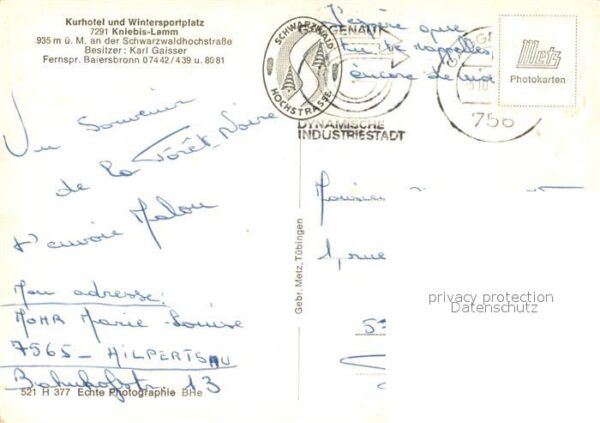 Kurhotel und Wintersportplatz
7291 Kniebis-Lamm
935 m ü. M. an der Schwarzwaldhochstraße
Besitzer: Karl Gaisser
Fernspr. Baiersbronn 07442/439 u. 8081
SCHWARZWALD
HOCHSTRASSE
GAGGENAU
DYNAMISCHE
INDUSTRIESTADT
756
Metz
Photokarten
J'espère que
tu te rappelles
encore de moi
Un Souvenir
de la Forêt-Noire
t'envoie Malou
Mon adresse:
MOHR Marie-Louise
7565 - HILPERTSAU
Bahnhofstr. 13
521 H 377 Echte Photographie BHe
Gebr. Metz, Tübingen
1, rue
privacy protection
Datenschutz